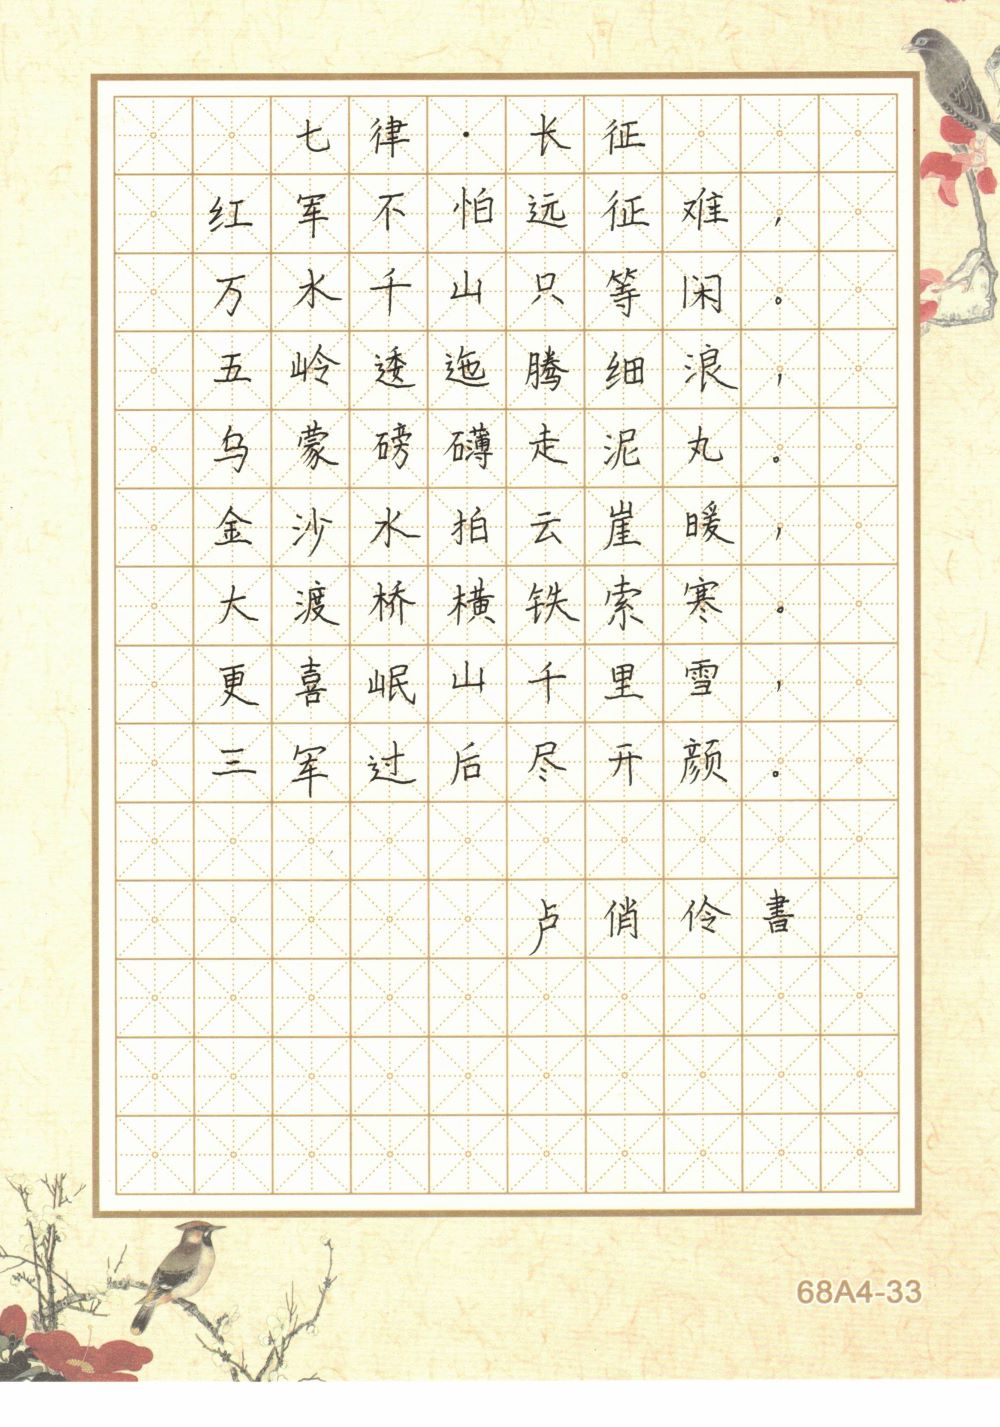 七律·长征
红军不怕远征难，
万水千山只等闲。
五岭逶迤腾细浪，
乌蒙磅礴走泥丸。
金沙水拍云崖暖，
大渡桥横铁索寒。
更喜岷山千里雪，
三军过后尽开颜。
卢俏伶書
68A4-33